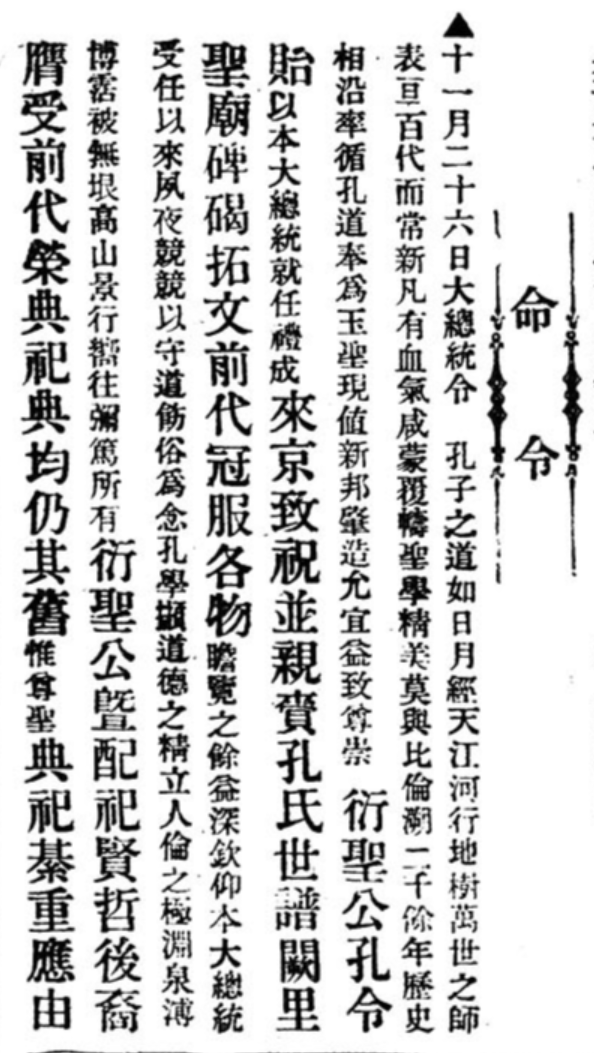 命令
▲十一月二十六日大總統令　孔子之道如日月經天江河行地樹萬世之師
表亘百代而常新凡有血氣咸蒙覆幬聖學精美莫與比倫溯二千餘年歷史
相沿率循孔道奉爲至聖現値新邦肇造允宜益致尊崇　衍聖公孔令
貽以本大總統就任禮成來京致祝並親賫孔氏世譜闕里
聖廟碑碣拓文前代冠服各物瞻覽之餘益深欽仰本大總統
受任以來夙夜兢兢以守道飭俗爲念孔學擷道德之精立人倫之極淵泉溥
博霑被無垠高山景行嚮往彌篤所有衍聖公曁配祀賢哲後裔
膺受前代榮典祀典均仍其舊惟尊聖典祀綦重應由